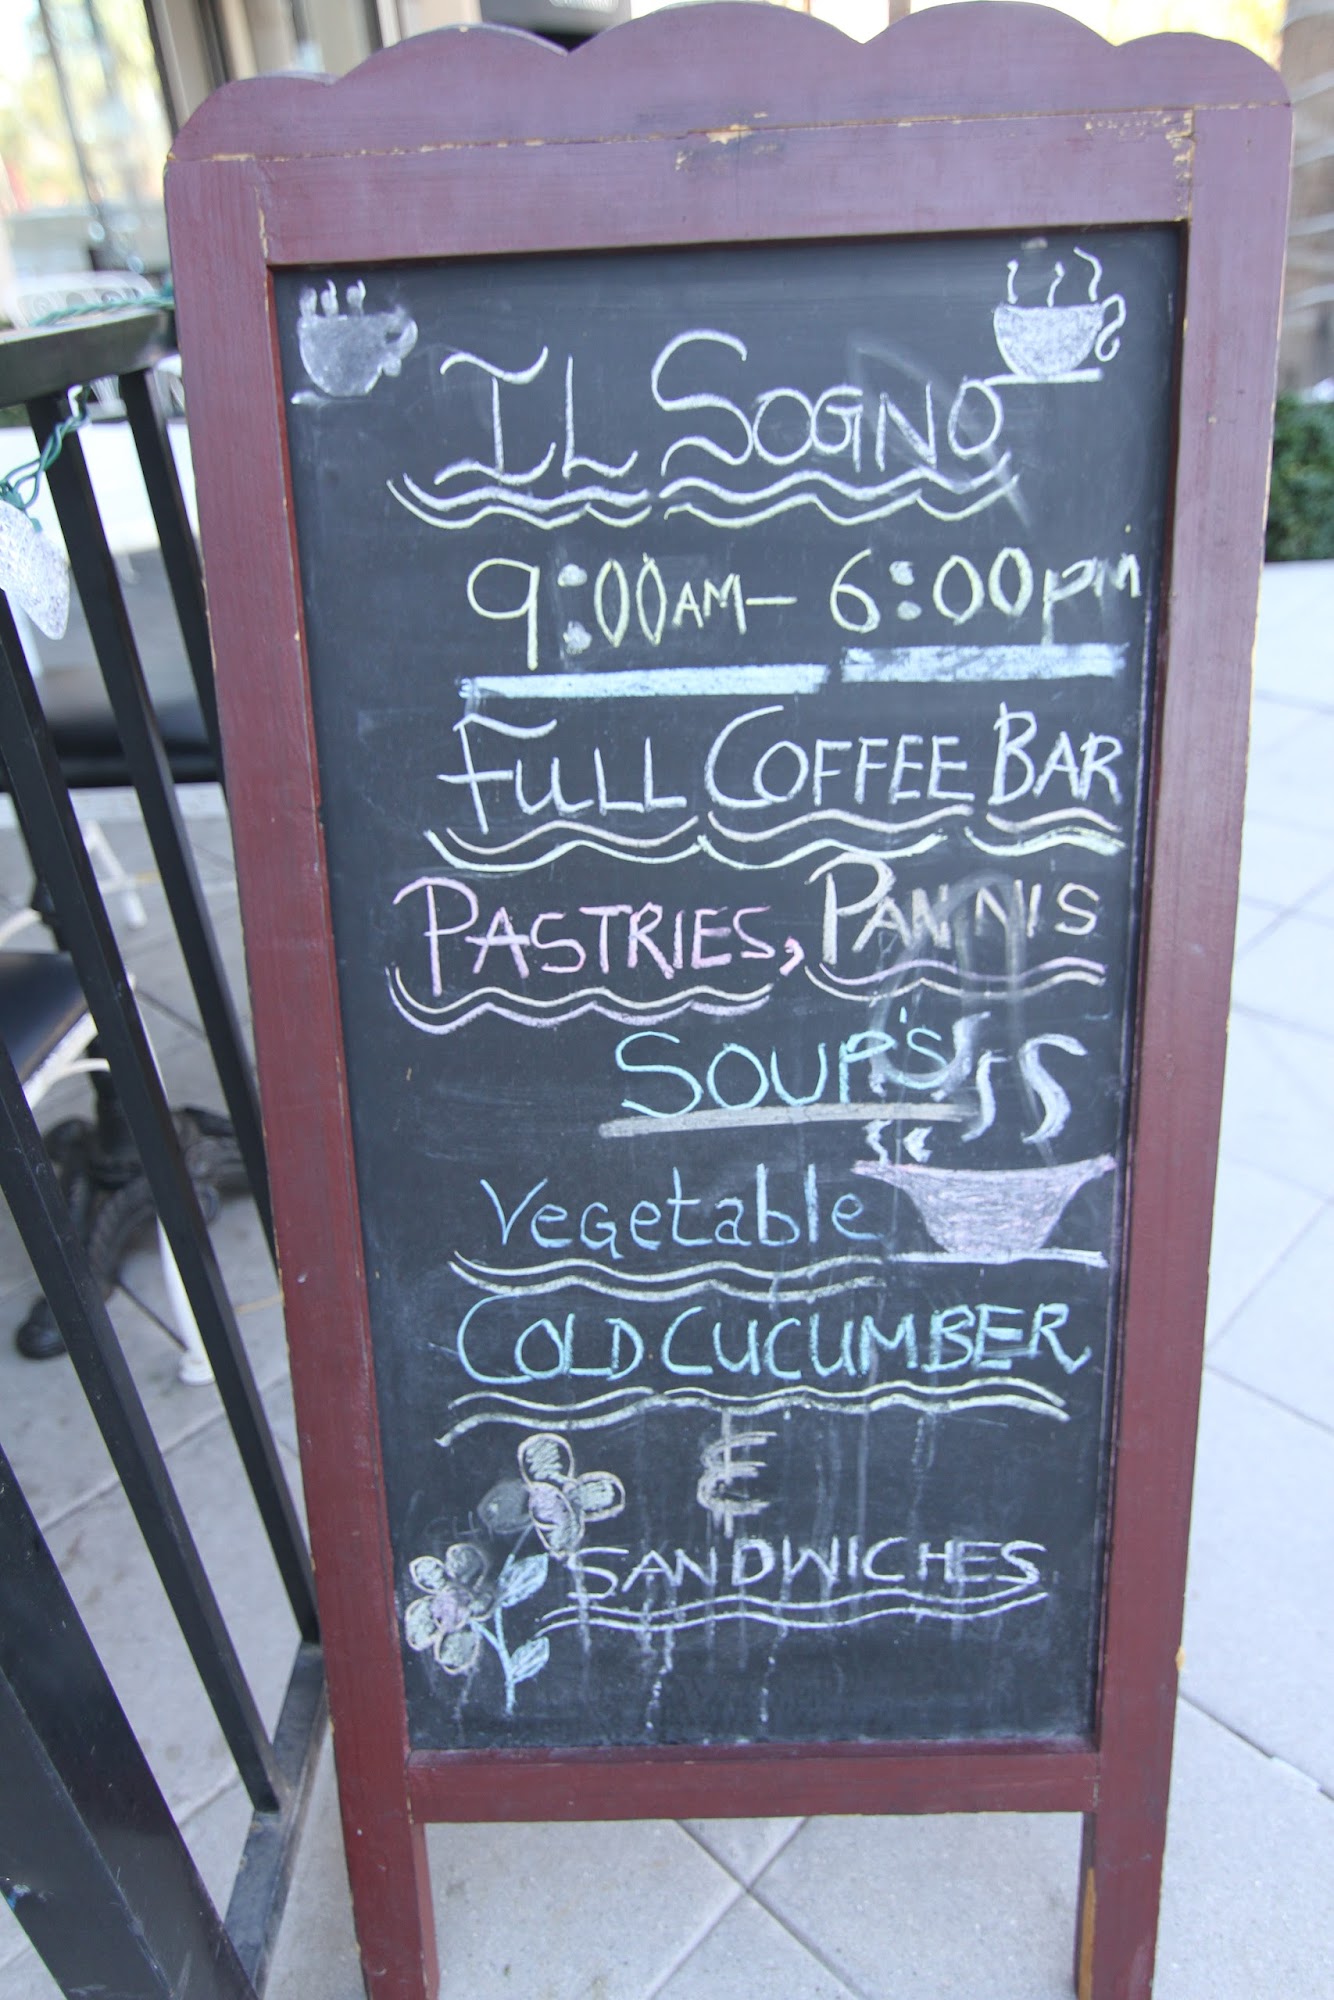 IL SOGNO
9:00AM - 6:00PM
FULL COFFEE BAR
PASTRIES, PANNIS
SOUP'S
Vegetable
COLD CUCUMBER
&
SANDWICHES